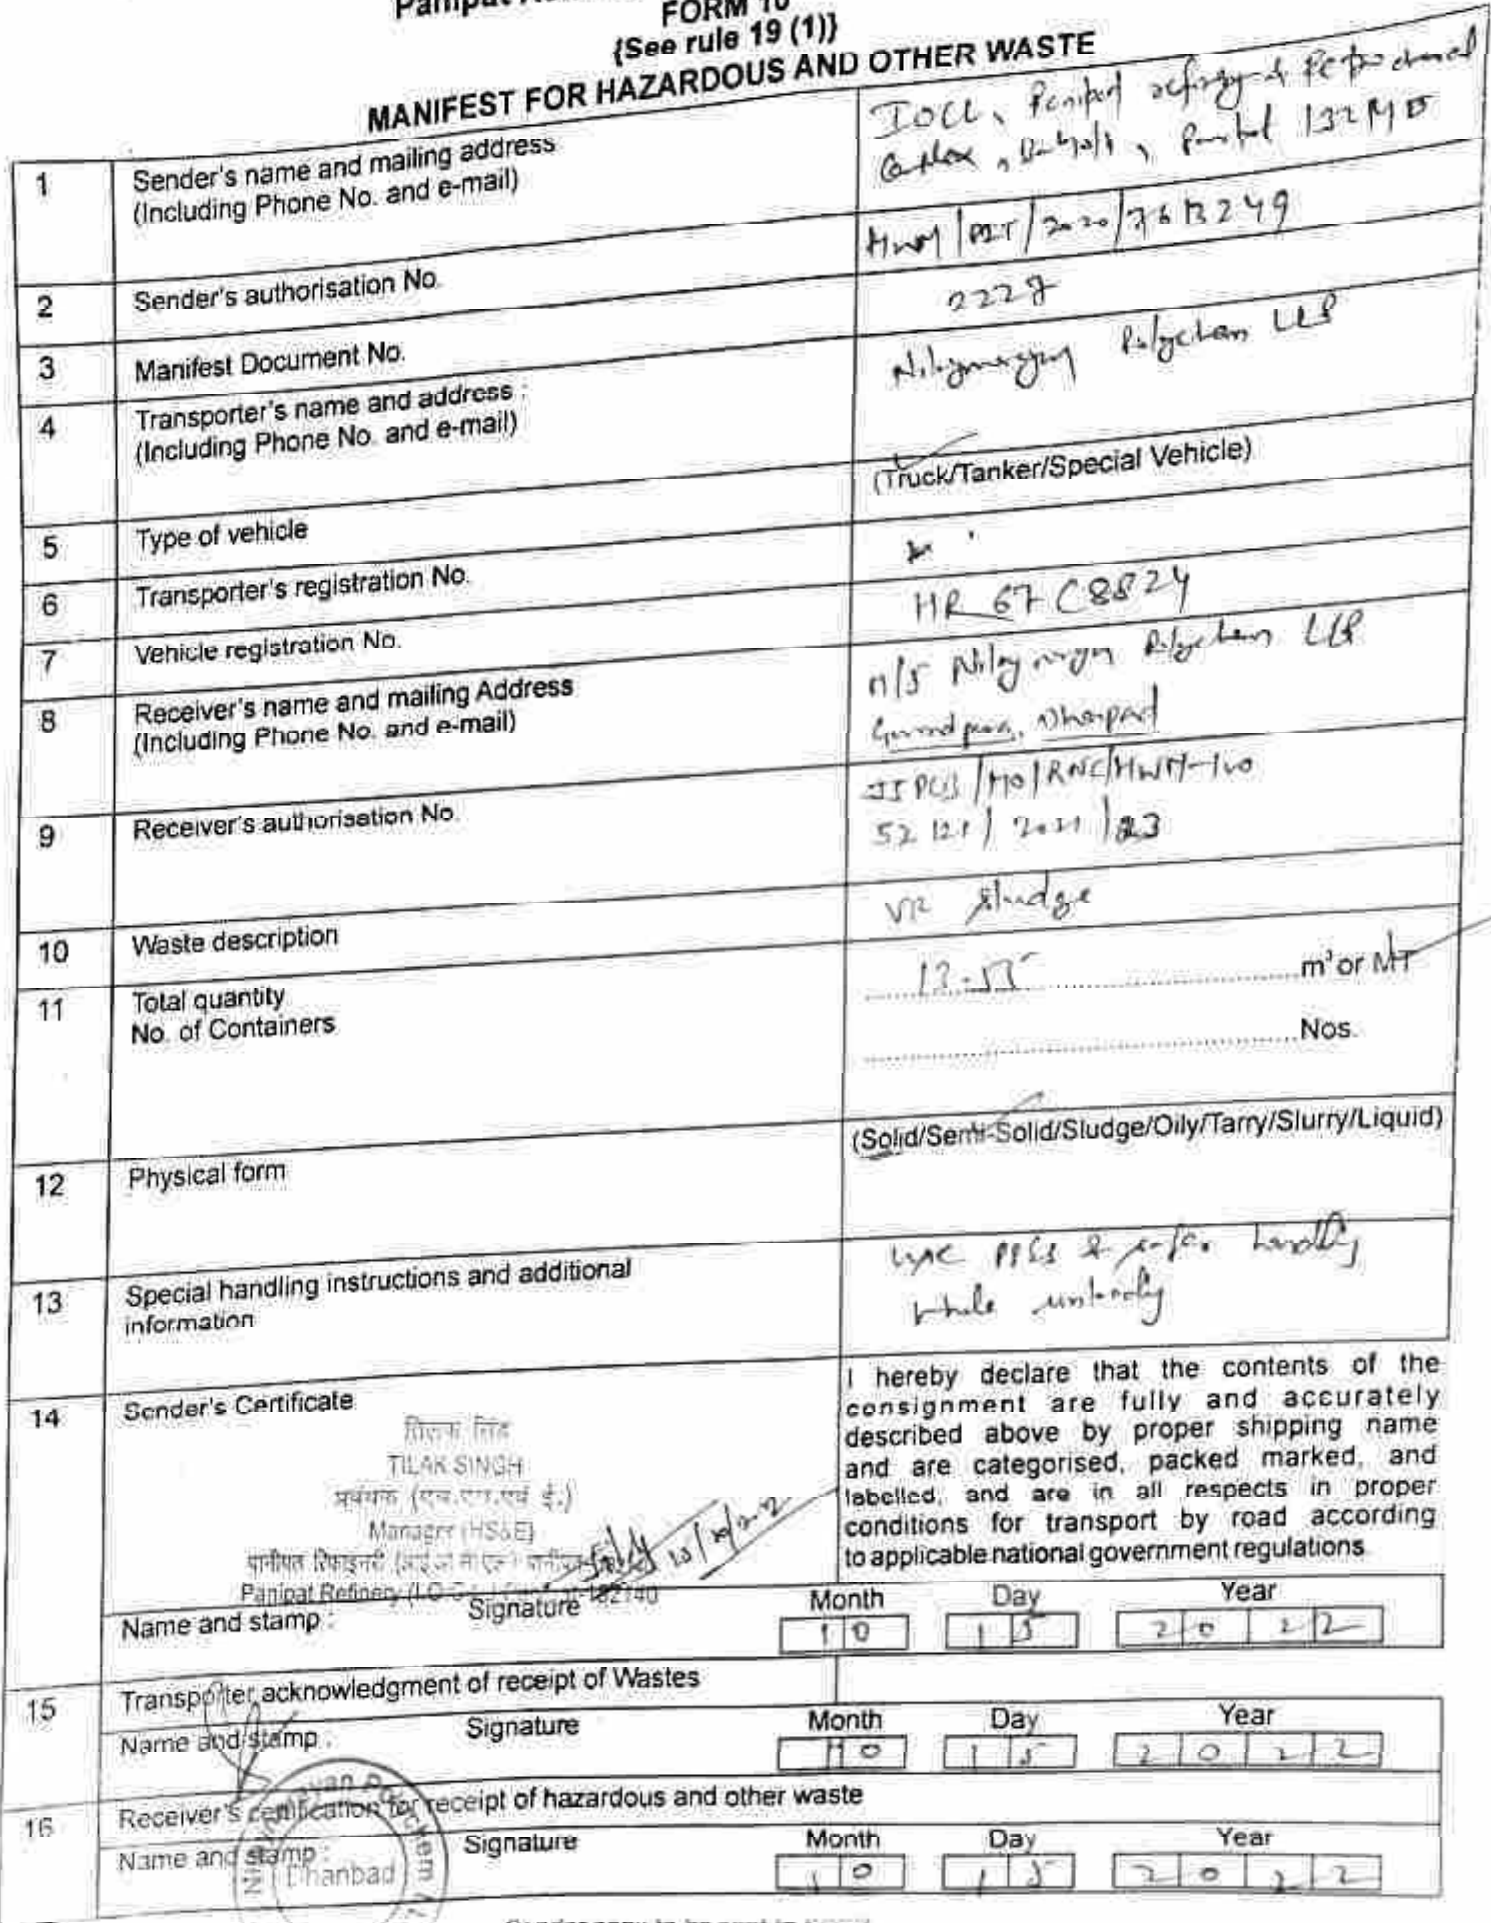 FORM 10
{See rule 19 (1)}
MANIFEST FOR HAZARDOUS AND OTHER WASTE
1 Sender's name and mailing address
(Including Phone No. and e-mail)
IOCL, Panipat refinery & Petrochemical
Complex, Panipat 132140
2 Sender's authorisation No.
3 Manifest Document No.
2227
4 Transporter's name and address :
(Including Phone No. and e-mail)
Polychem LLP
5 Type of vehicle
(Truck/Tanker/Special Vehicle)
6 Transporter's registration No.
7 Vehicle registration No.
HR 67 C8824
8 Receiver's name and mailing Address
(Including Phone No. and e-mail)
M/S Polychem LLP
Dhanbad
9 Receiver's authorisation No.
JSPCB/HO/RNC/HWM-
10 Waste description
sludge
11 Total quantity
No. of Containers
m³ or MT
Nos.
12 Physical form
(Solid/Semi-Solid/Sludge/Oily/Tarry/Slurry/Liquid)
13 Special handling instructions and additional
information
use PPEs & handling
while
14 Sender's Certificate
तिलक सिंह
TILAK SINGH
प्रबंधक (एच.एस.एवं ई.)
Manager (HS&E)
पानीपत रिफाइनरी
Panipat Refinery
I hereby declare that the contents of the
consignment are fully and accurately
described above by proper shipping name
and are categorised, packed marked, and
labelled, and are in all respects in proper
conditions for transport by road according
to applicable national government regulations
Name and stamp : Signature Month Day Year
10 15 2022
15 Transporter acknowledgment of receipt of Wastes
Name and stamp : Signature Month Day Year
10 15 2022
16 Receiver's certification for receipt of hazardous and other waste
Name and stamp : Signature Month Day Year
10 15 2022
Dhanbad